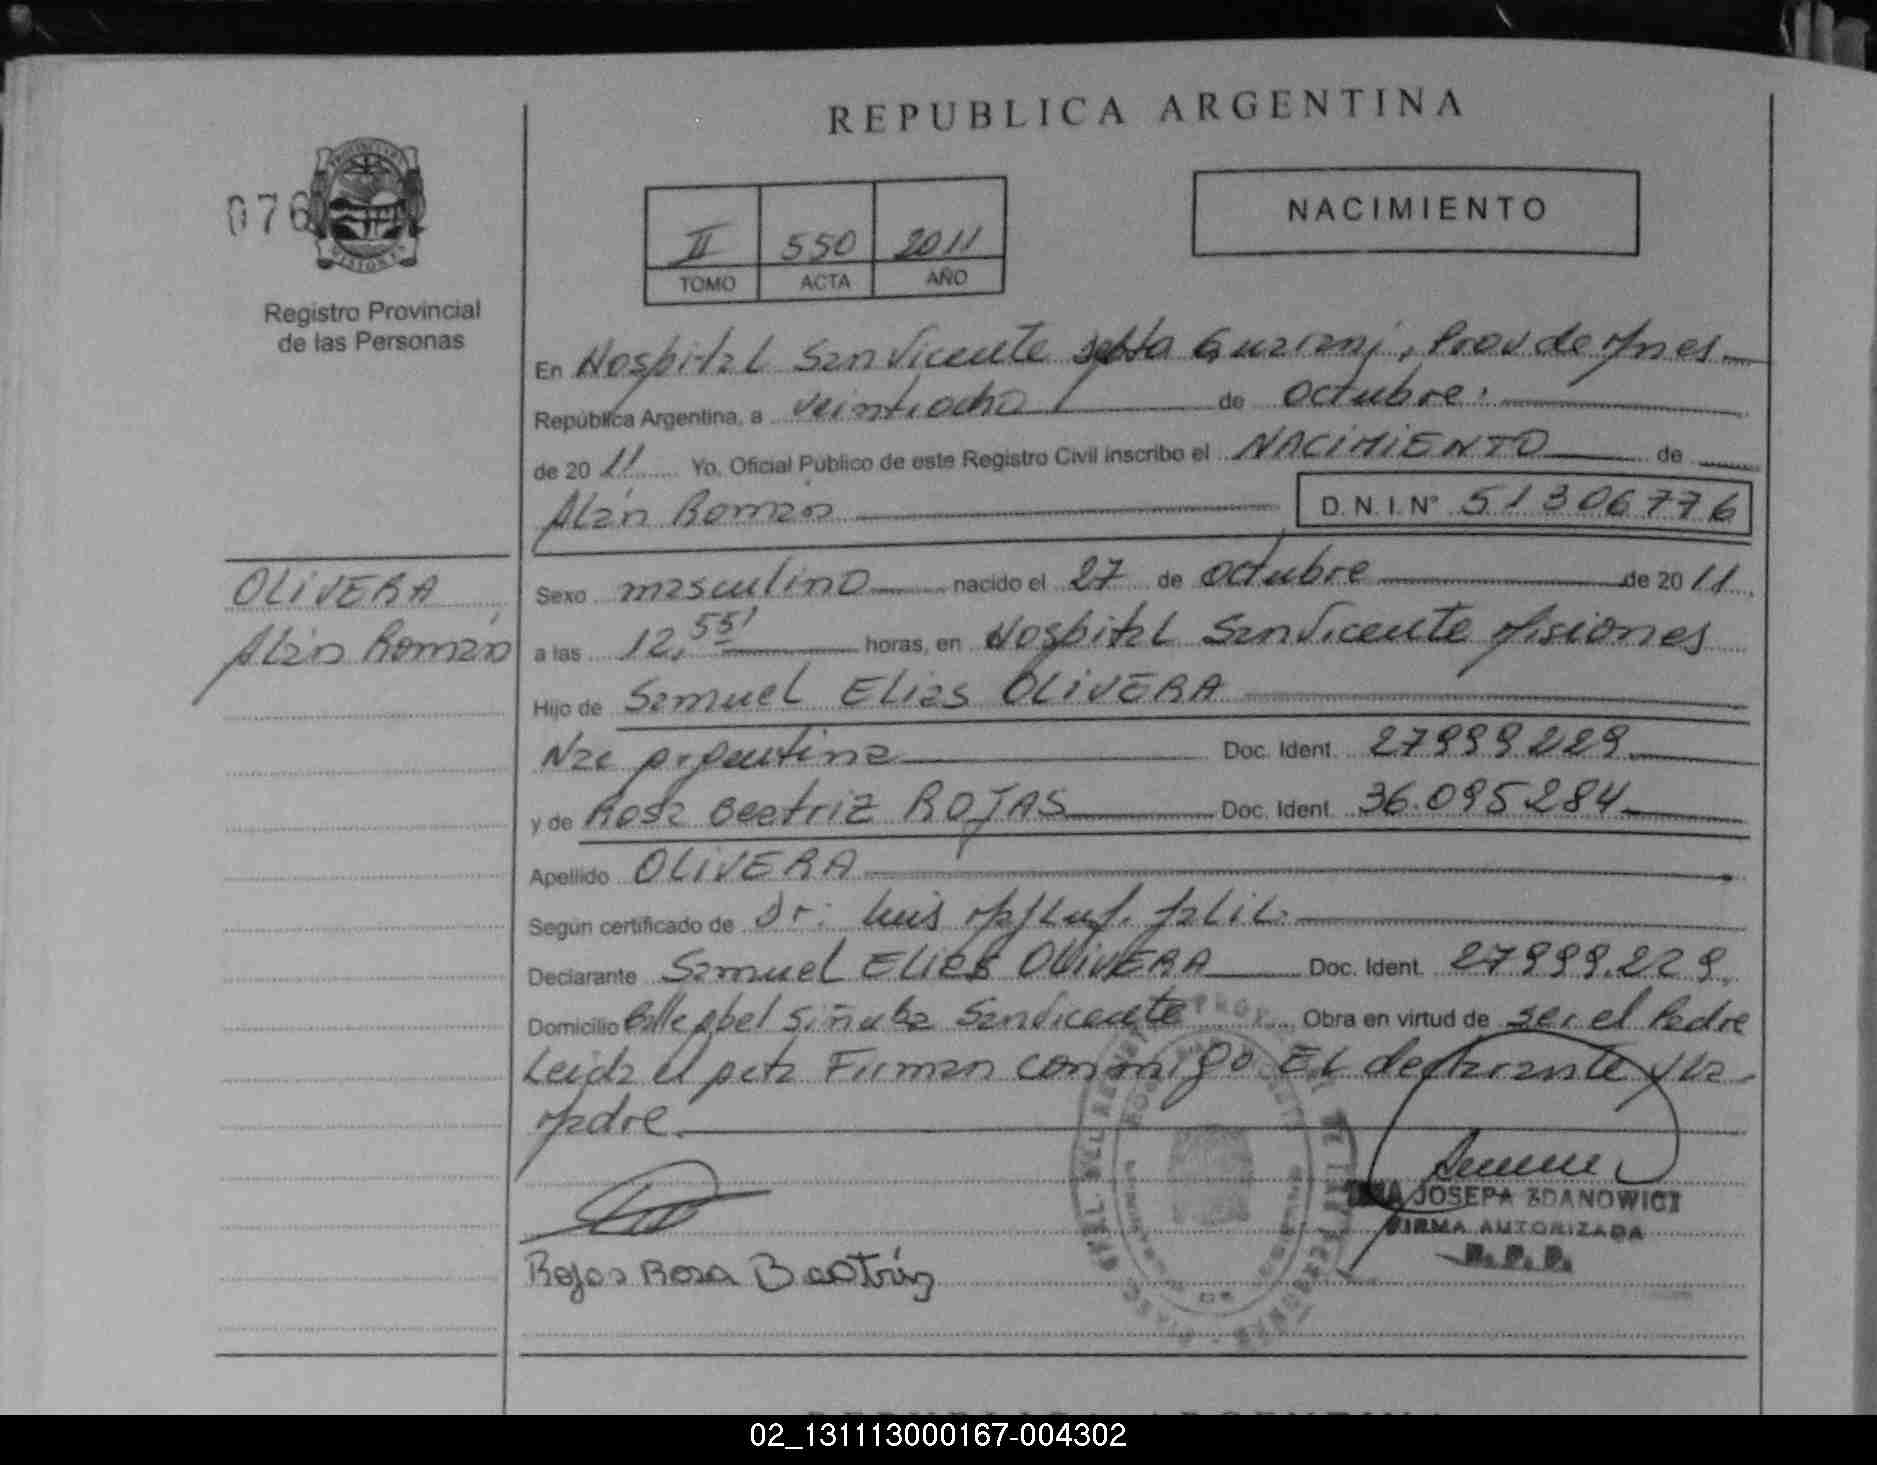 REPUBLICA ARGENTINA
076
Registro Provincial
de las Personas
II 550 2011
TOMO ACTA AÑO
NACIMIENTO
En Hospital San Vicente Guarani, Prov de Mnes
República Argentina, a veintiocho de octubre
de 2011 Yo, Oficial Público de este Registro Civil inscribo el NACIMIENTO de
Alán Román D.N.I.Nº 51306776
OLIVERA
Alán Román
Sexo masculino nacido el 27 de octubre de 2011
a las 12,55' horas, en Hospital San Vicente Misiones
Hijo de Samuel Elias OLIVERA
Nac Argentina Doc. Ident. 27999229
y de Rosa Beatriz ROJAS Doc. Ident. 36.095284
Apellido OLIVERA
Según certificado de Dr: Luis
Declarante Samuel Elias OLIVERA Doc. Ident. 27999.229
Domicilio Calle Abel San Vicente Obra en virtud de ser el Padre
Leida el Acta Firman conmigo El declarante y la
Madre
Rojas Rosa Beatriz
JOSEFA ZDANOWICZ
FIRMA AUTORIZADA
R.P.P.
02_131113000167-004302